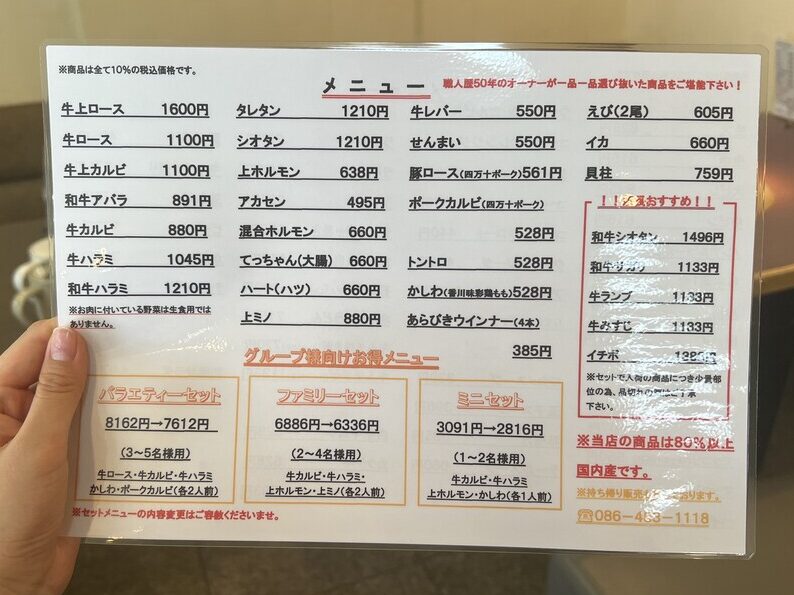 ※商品は全て10%の税込価格です。
メニュー
職人歴50年のオーナーが一品一品選び抜いた商品をご堪能下さい！
牛上ロース 1600円
牛ロース 1100円
牛上カルビ 1100円
和牛アバラ 891円
牛カルビ 880円
牛ハラミ 1045円
和牛ハラミ 1210円
※お肉に付いている野菜は生食用では
ありません。
タレタン 1210円
シオタン 1210円
上ホルモン 638円
アカセン 495円
混合ホルモン 660円
てっちゃん(大腸) 660円
ハート(ハツ) 660円
上ミノ 880円
牛レバー 550円
せんまい 550円
豚ロース(四万十ポーク)561円
ポークカルビ(四万十ポーク)
528円
トントロ 528円
かしわ(香川味彩鶏もも)528円
あらびきウインナー(4本)
385円
えび(2尾) 605円
イカ 660円
貝柱 759円
おすすめ！！
和牛シオタン 1496円
和牛サガリ 1133円
牛ランプ 1133円
牛みすじ 1133円
イチボ
※セットで入荷の商品につき少量部
位の為、品切れの際はご了承
下さい。
グループ様向けお得メニュー
バラエティーセット
8162円→7612円
(3～5名様用)
牛ロース・牛カルビ・牛ハラミ
かしわ・ポークカルビ(各2人前)
ファミリーセット
6886円→6336円
(2～4名様用)
牛カルビ・牛ハラミ・
上ホルモン・上ミノ(各2人前)
ミニセット
3091円→2816円
(1～2名様用)
牛カルビ・牛ハラミ
上ホルモン・かしわ(各1人前)
※セットメニューの内容変更はご容赦くださいませ。
※当店の商品は80%以上
国内産です。
※持ち帰り販売もしております。
☎086-463-1118